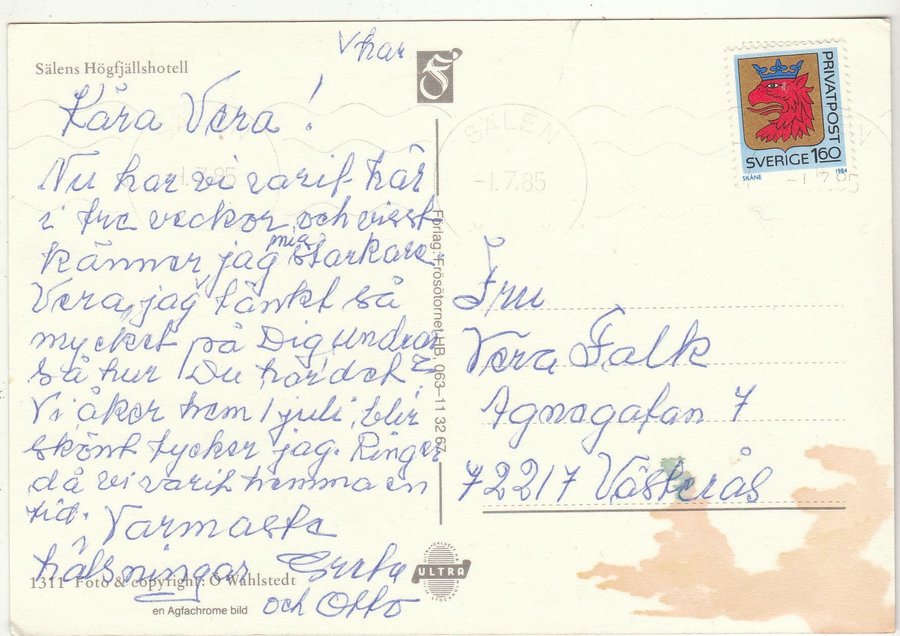 Sälens Högfjällshotell
V har
Kära Vera!
Nu har vi varit här
i tre veckor, och visst
känner jag mig starkare
Vera, jag V tänkt så
mycket på Dig, undrar
så hur Du har det?
Vi åker hem 1 juli, blir
skönt tycker jag. Ringer
då vi varit hemma en
tid. Varmaste
hälsningar Greta
och Otto
1311 Foto & copyright: O Wahlstedt
en Agfachrome bild
Förlag: Frösötornet HB, 063–11 32 67
ULTRA
SÄLEN
-1.7.85
-1.7.85
SÄLEN
-1.7.85
PRIVATPOST
SVERIGE 160
SKÅNE 1984
Fru
Vera Falk
Agnegatan 7
72217 Västerås